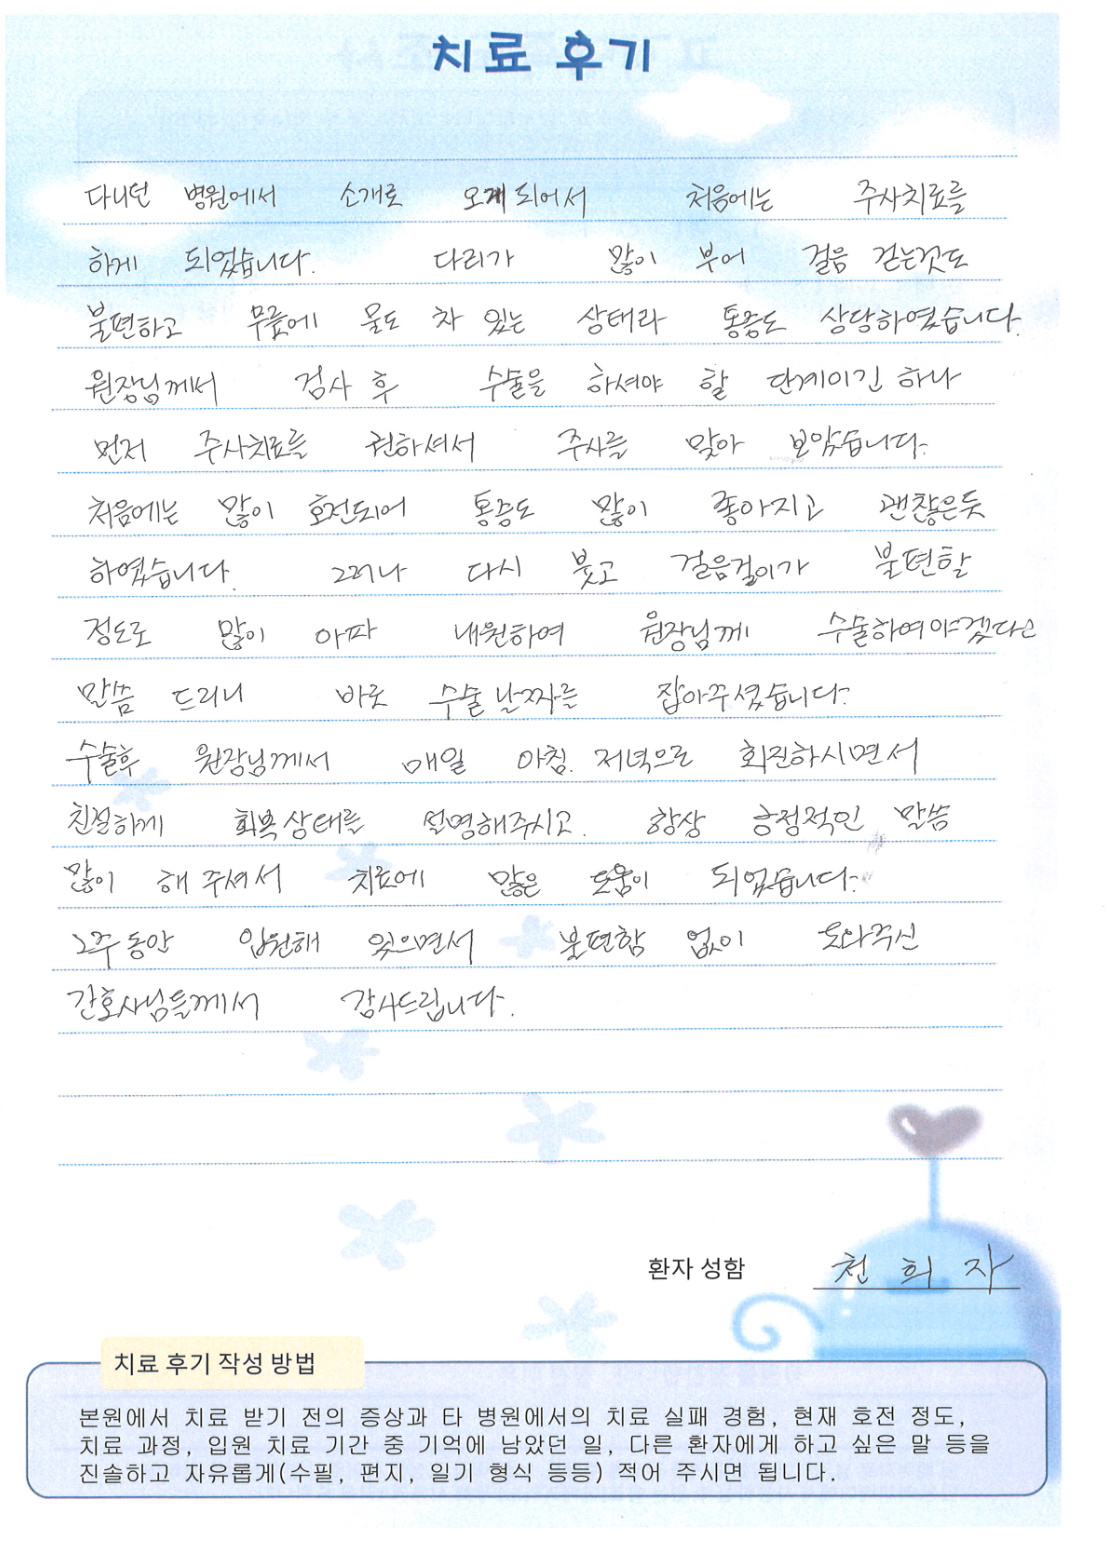 치료 후기
다니던 병원에서 소개로 오게 되어서 처음에는 주사치료를
하게 되었습니다. 다리가 많이 부어 걸음 걷는것도
불편하고 무릎에 물도 차 있는 상태라 통증도 상당하였습니다.
원장님께서 검사 후 수술을 하셔야 할 단계이긴 하나
먼저 주사치료를 권하셔서 주사를 맞아 보았습니다.
처음에는 많이 호전되어 통증도 많이 좋아지고 괜찮은듯
하였습니다. 그러나 다시 붓고 걸음걸이가 불편할
정도로 많이 아파 내원하여 원장님께 수술하여야겠다고
말씀 드리니 바로 수술 날짜를 잡아주셨습니다.
수술후 원장님께서 매일 아침. 저녁으로 회진하시면서
친절하게 회복상태를 설명해주시고. 항상 긍정적인 말씀
많이 해 주셔서 치료에 많은 도움이 되었습니다.
2주동안 입원해 있으면서 불편함 없이 도와주신
간호사님들께서 감사드립니다.
환자 성함 천 희 자
치료 후기 작성 방법
본원에서 치료 받기 전의 증상과 타 병원에서의 치료 실패 경험, 현재 호전 정도,
치료 과정, 입원 치료 기간 중 기억에 남았던 일, 다른 환자에게 하고 싶은 말 등을
진솔하고 자유롭게(수필, 편지, 일기 형식 등등) 적어 주시면 됩니다.